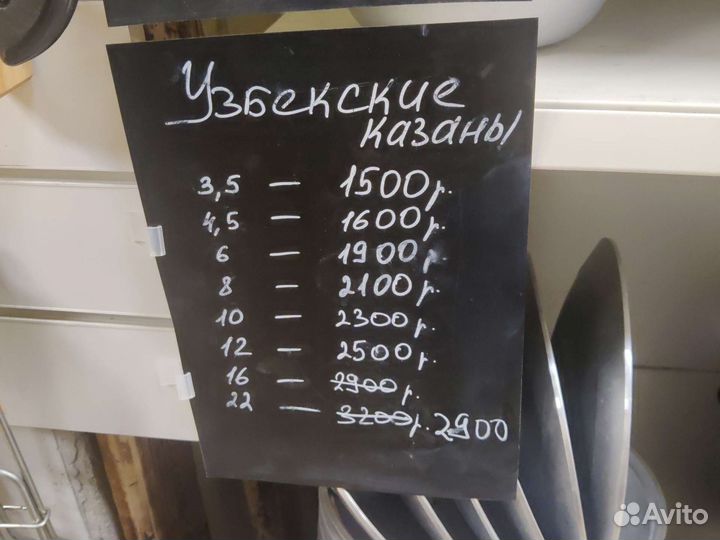 Узбекские
казаны
3,5 — 1500р.
4,5 — 1600р.
6 — 1900р.
8 — 2100р.
10 — 2300р.
12 — 2500р.
16 — 2900р.
22 — 3200р. 2900
Avito